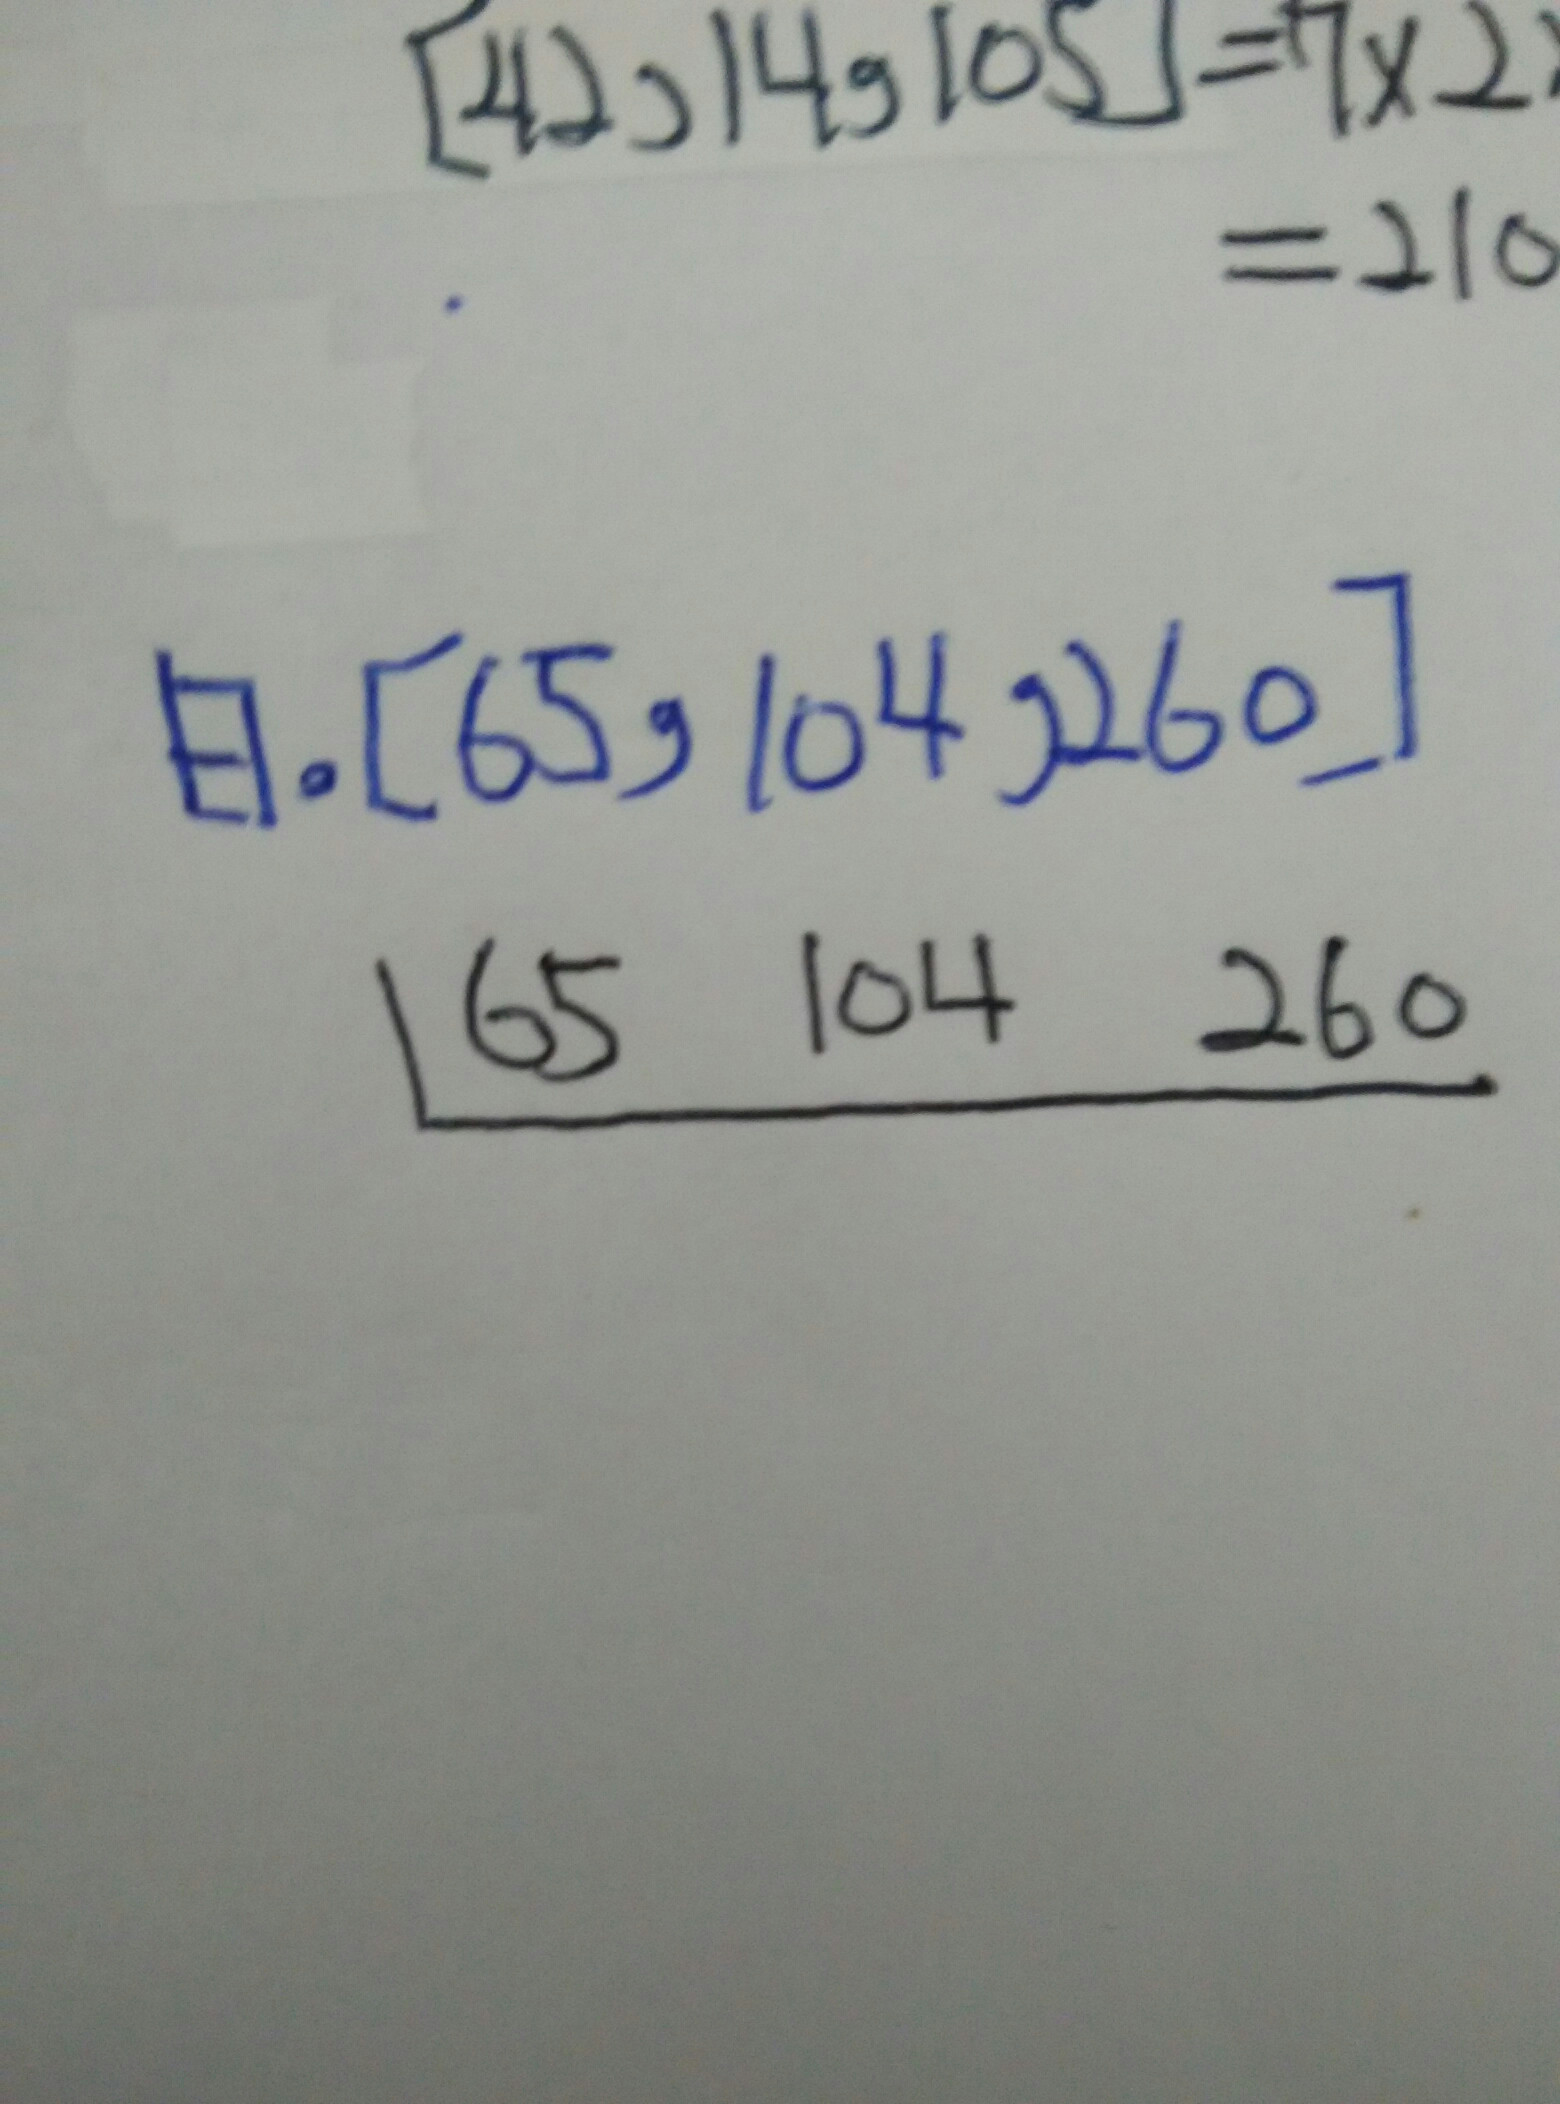 [42,14,105]=7x2
=210
日.[65,104,260]
65 104 260